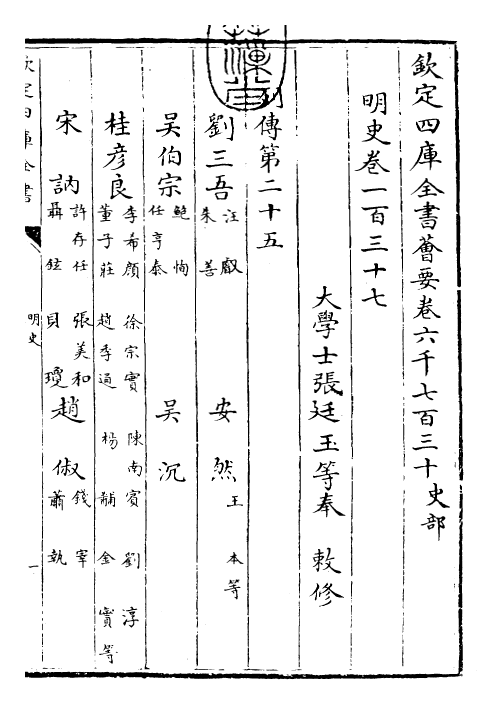 欽定四庫全書薈要卷六千七百三十 史部
明史卷一百三十七
大學士張廷玉等奉 敕修
列傳第二十五
劉三吾 汪叡 朱善 安然 王本等
吳伯宗 鮑恂 任亨泰 吳沉
桂彦良 李希顔 徐宗實 陳南賓 劉淳 董子莊 趙季通 楊黼 金實等
宋訥 許存仁 張美和 聶鉉 貝瓊 趙俶 錢宰 蕭執
欽定四庫全書
明史
一